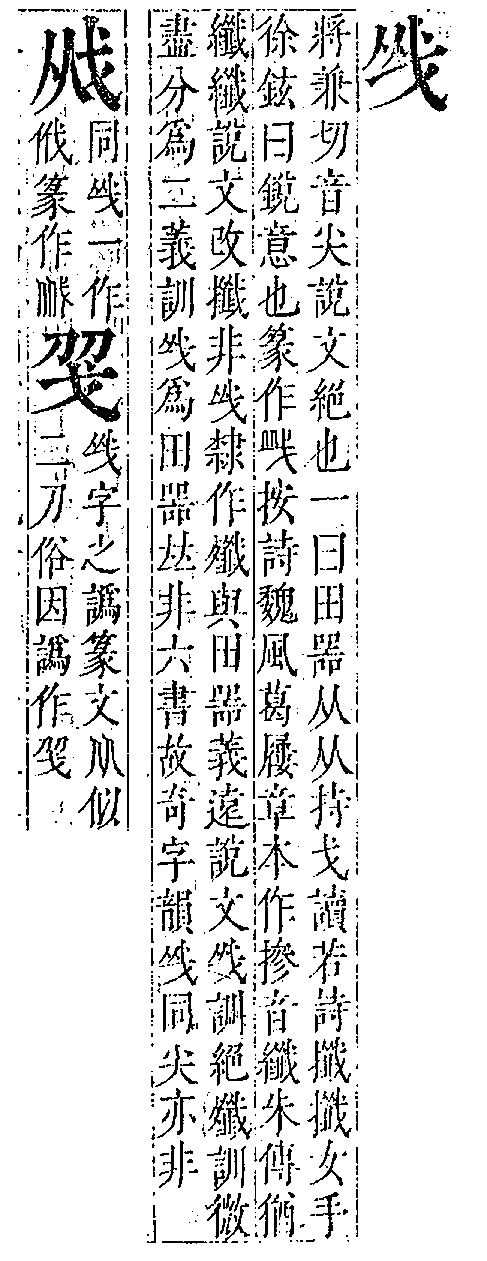 𢦏
將兼切音尖說文絕也一曰田器从从持戈讀若詩攕攕女手
徐鉉曰銳意也篆作𢦏按詩魏風葛屨章本作摻音纖朱傳猶
纖纖說文改攕非𢦏隸作殲與田器義遠說文𢦏訓絕殲訓微
盡分爲二義訓𢦏爲田器𠀤非六書故奇字韻𢦏同尖亦非
同𢦏一作
篆作
字之譌篆文从似
二刀俗因譌作